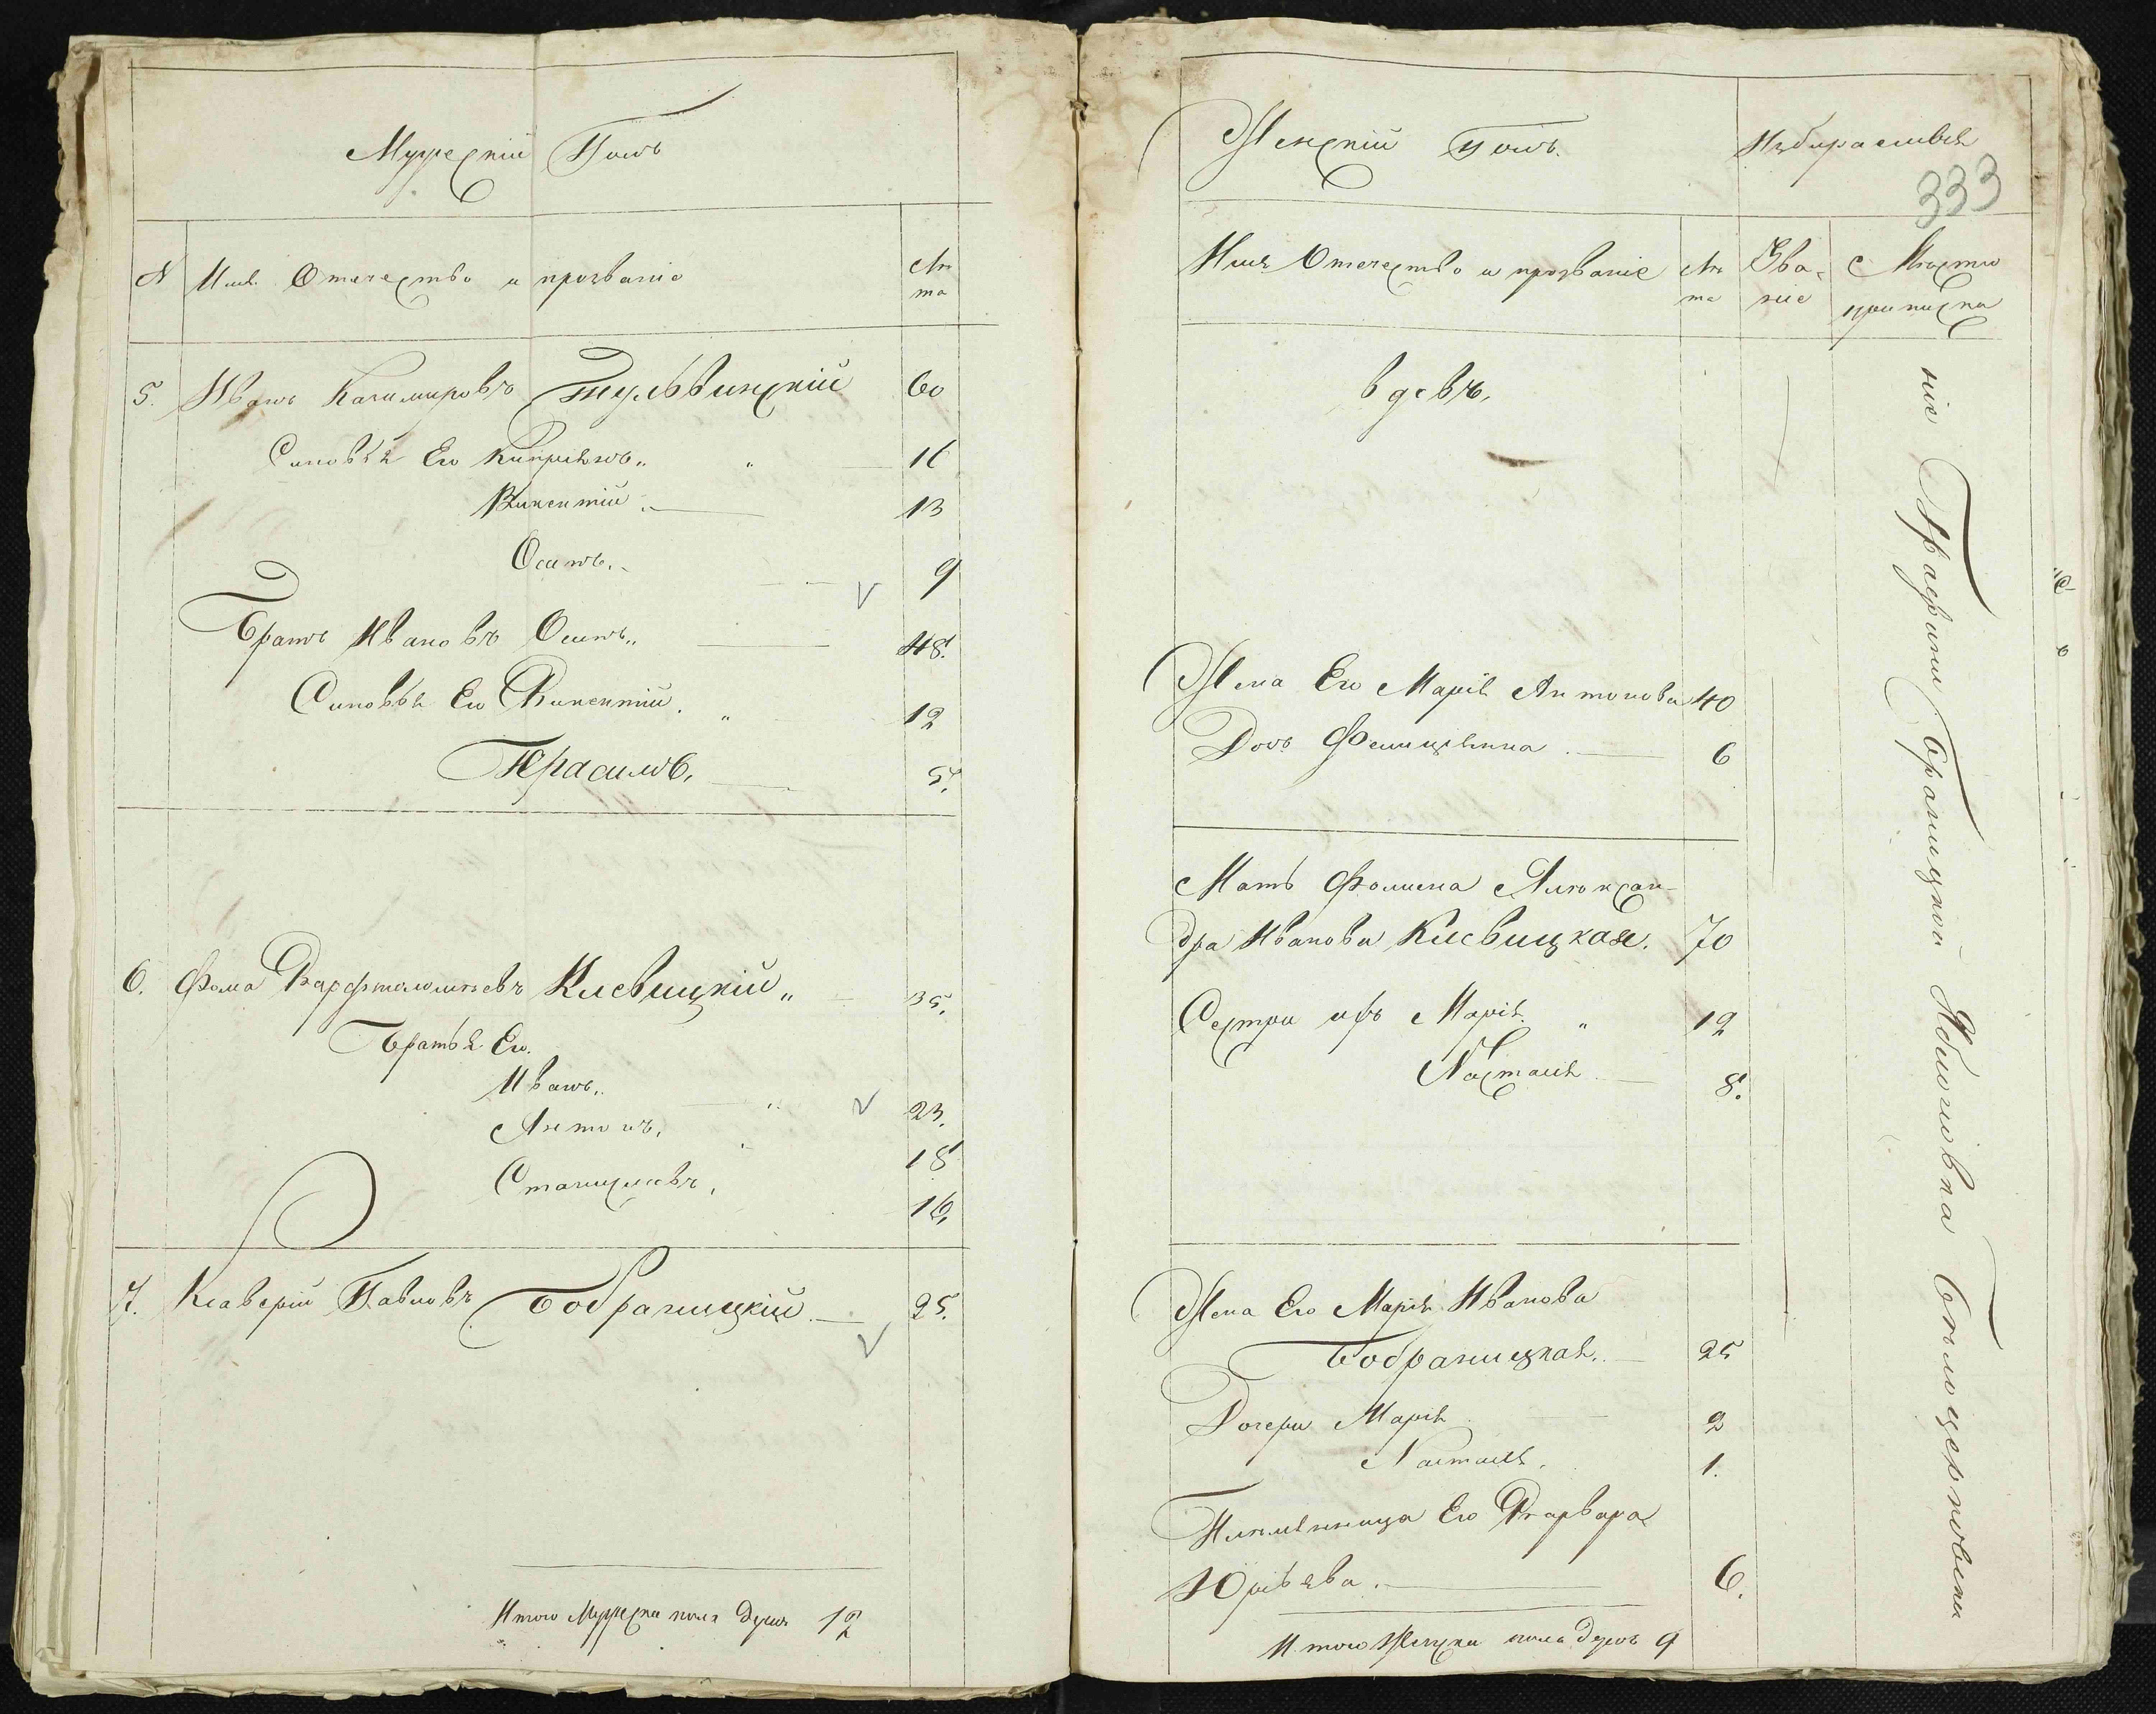 Мужескій Полъ
N Имя Отечество и прозваніе Лѣ
та
5. Иванъ Казимировъ 60
Сыновья Его Кипріянъ „ „ 16
Викентій. 13
Осипъ. 9
Братъ Ивановъ Осипъ„ 48.
Сыновья Его Викентій. „ 12
Герасимъ. 5.
6. Фома Варфоломѣевъ Клевицкій „ 35.
Братья Его.
Иванъ. 23.
Антонъ. 18
Станиславъ. 16.
7. Ксаверій Павловъ Бобраницкій. 25.
Итого Мужеска пола душъ 12
Женскій Полъ.
333
Имя Отечество и прозваніе Лѣ
та Зва-
ніе Мѣсто
приписка
вдовъ.
Жена Его Марія Антонова 40
Дочь Фелиціянна. 6
Мать Фомина Алексан-
дра Иванова Клевицкая. 70
Сестры ихъ Марія. „ 12
Настасія. 8.
Жена Его Марія Иванова
Бобраницкая. 25
Дочери Марія 2
Настасія. 1.
Племянница Его Варвара
Юрьева. 6.
Итого Женска пола душъ 9
нія Графини Браницкой Яблоновка Бѣлоцерковски